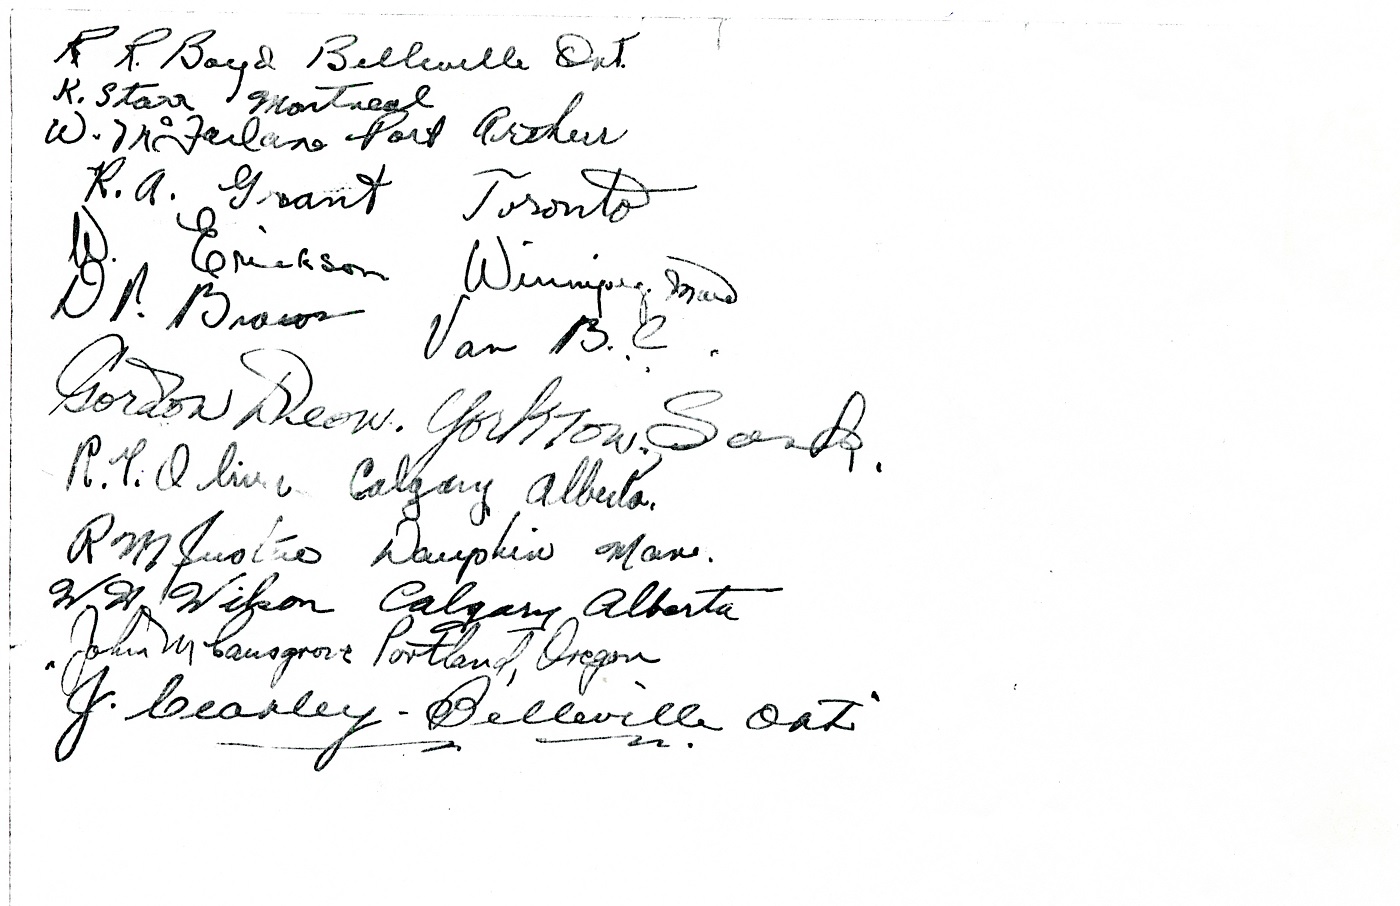 R R. Boyd Belleville Ont.
K. Starr Montreal
W. McFarlane Port Arthur
R. A. Grant Toronto
W. Erickson Winnipeg. Man
D P. Brown Van B. C.
Gordon Yorkton. Sask.
R. Y. Oliver Calgary Alberta.
R M Dauphin Man.
W W Wilson Calgary Alberta
John M Causgrove Portland, Oregon
J. Cearley - Belleville Ont